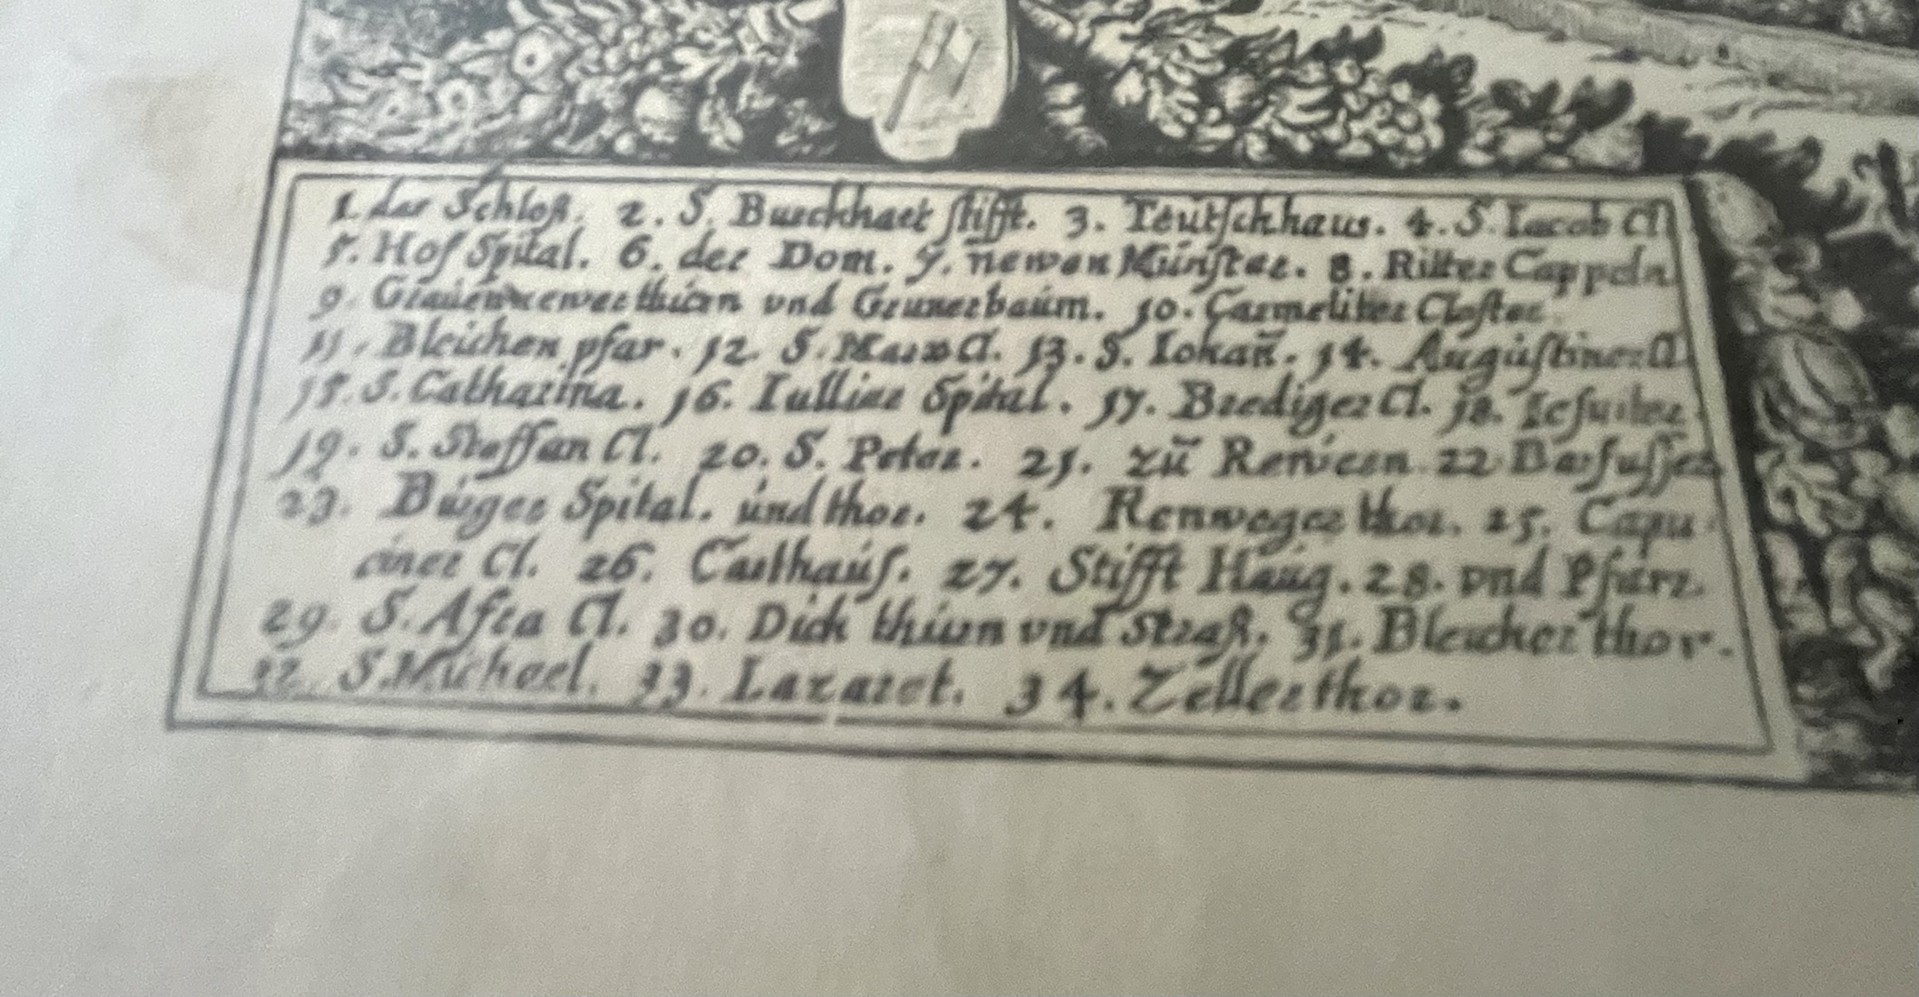 1. das Schloß. 2. S. Burckhart ſtifft. 3. Teütſchhaus. 4. S. Iacob Cl
5. Hof Spital. 6. der Dom. 7. newen Münſter. 8. Ritter Cappeln
9. vnd Grunerbaüm. 10. Carmeliter Cloſter
11. Bleichen pfar. 12 S. Marx Cl. 13. S. Iohañ. 14. Augüſtiner Cl
15. S. Catharina. 16. Iullier Spital. 17. Brediger Cl. 18. Ieſuiter
19. S. Steffan Cl. 20. S. Peter. 21. Zü Rewern 22 Barfuſſer
23. Bürger Spital. ünd thor. 24. Renweger thor. 25. Capu
ciner Cl. 26. Carthaüs. 27. Stifft Haüg. 28. vnd Pfarr
29. S. Afra Cl. 30. Dick thürn vnd Straß. 31. Bleicher thor.
32. S. Michael. 33. Lazaret. 34. Zellerthor.